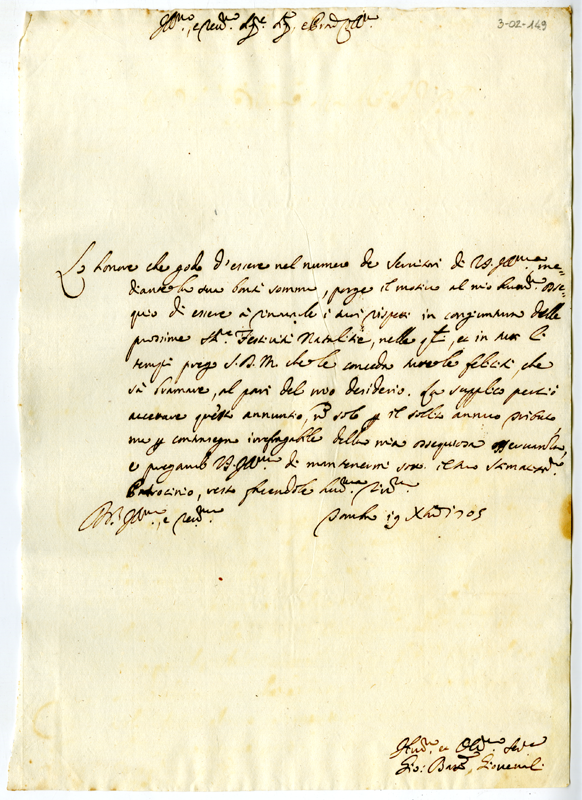 3-02-149
Ill.mo, e Rev.mo Sig.re Sig.r e Pron Coll.mo
Lo honore che godo d'essere nel numero de Servitori di V.S. Ill.ma me-
diante la sua bontà somma, porge il motivo al mio humil.mo osse-
quio di essere à rinovarle i miei rispetti in congiuntura delle
prossime S.te Festività Natalitie, nelle q.li et in tutti li
tempi prego S.D.M. che le conceda tutte le felicità che
sà bramare, al pari del mio desiderio. La supplico perciò
accettare questo annuntio, non solo p il solito annuo tributo
ma p contrasegno irrefragabile della mia ossequiosa osservanza,
e pregando V.S. Ill.ma di mantenermi sotto il suo stimatis.mo
Patrocinio, resto facendole hum.ma riv.za
Di V.S. Ill.ma, e Rev.ma
19 Xbre 1705
Hum.mo et Obl.mo Ser.re
Gio: Batt.a Giovenal